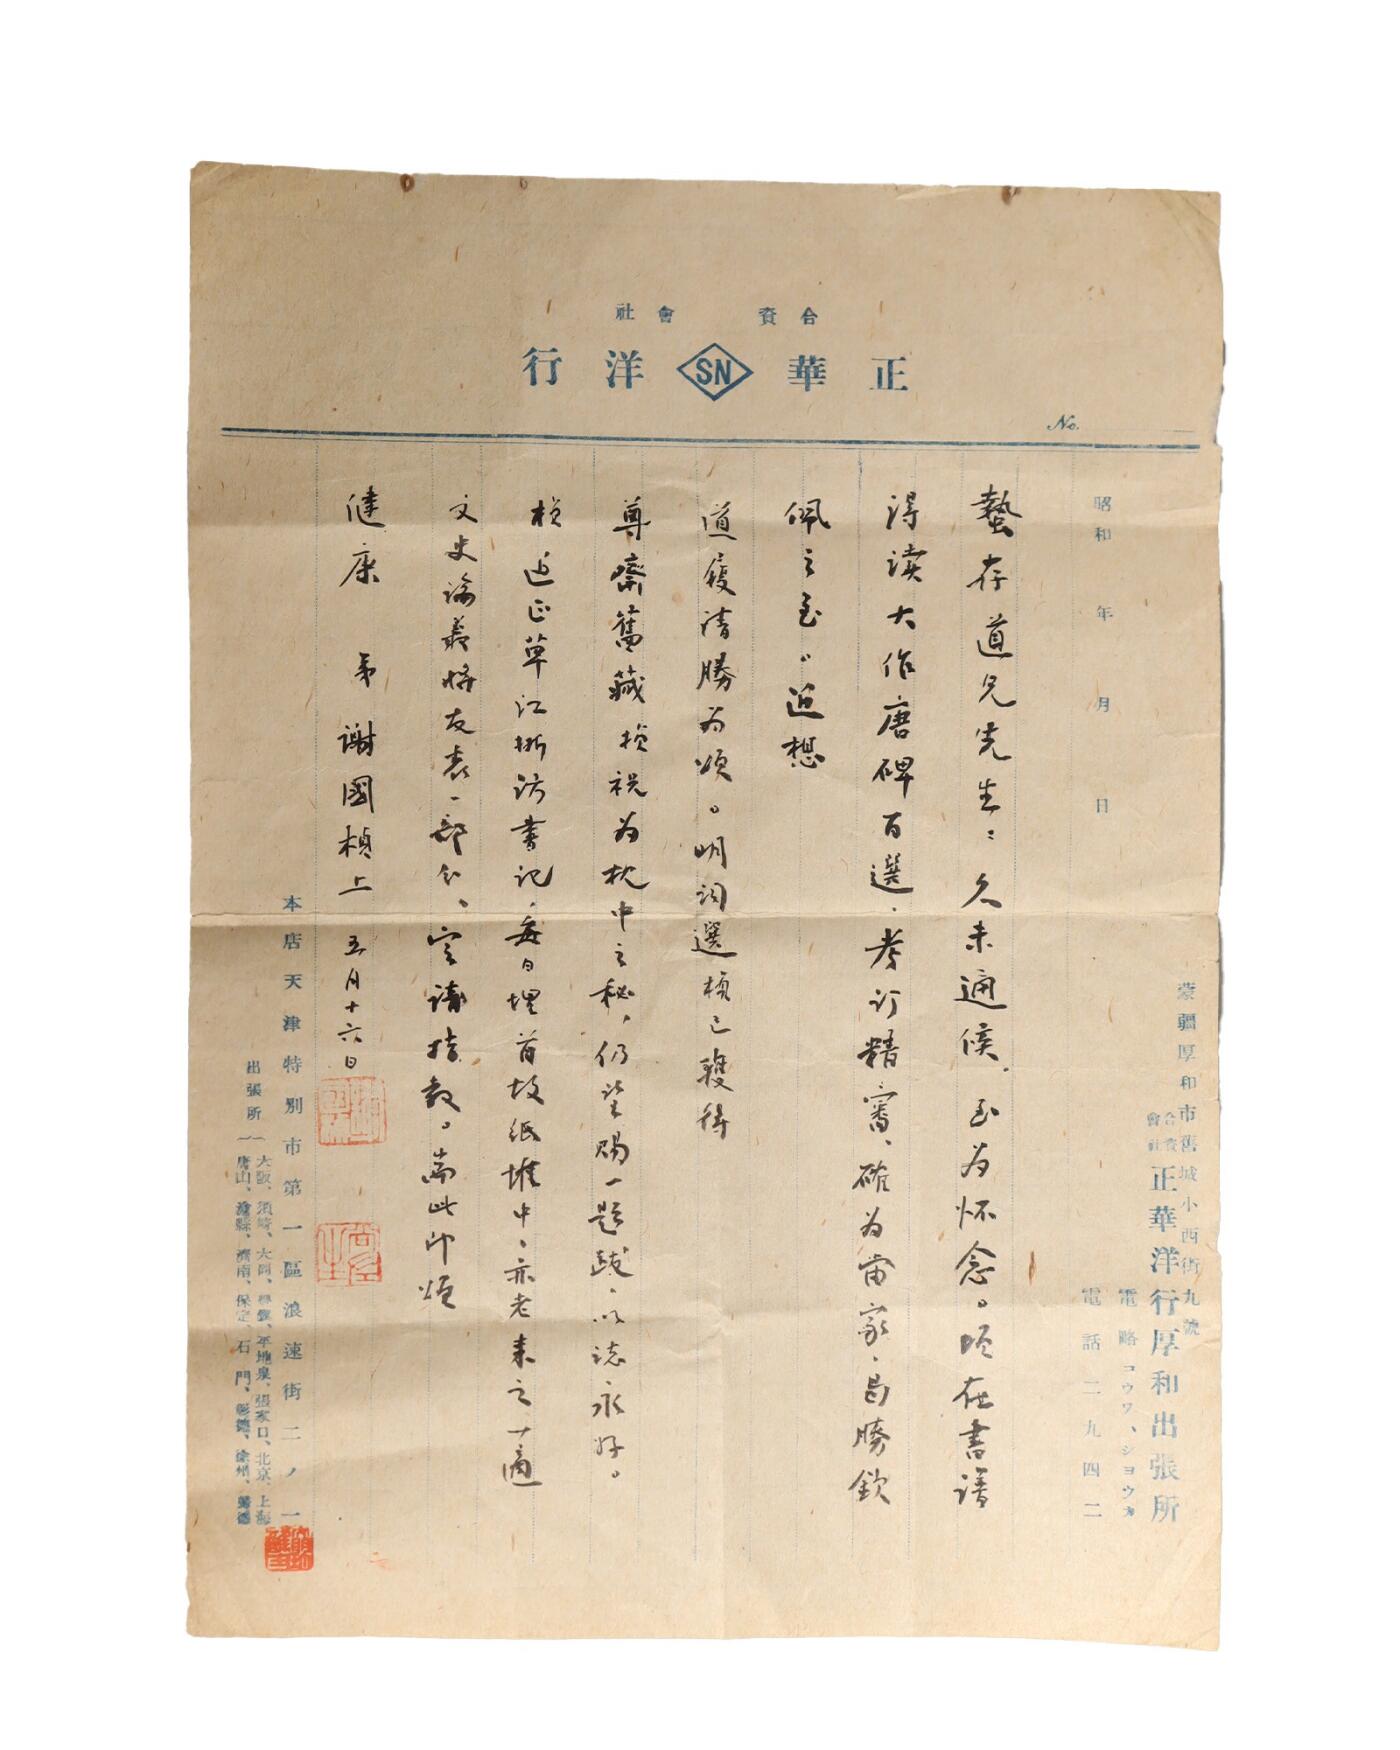 合資會社
正華洋行
SN
No.
昭和 年 月 日
蟄存道兄先生：久未通候，至为怀念。顷在書譜
得读大作唐碑百選，考订精審、確为當家，曷勝欽
佩之至。近想
道履清勝为頌。明词選楨已獲得
尊齋舊藏楨祝为枕中之秘，仍望赐一题跋，以誌永好。
楨近正草江浙访書记，每日埋首故纸堆中，亦老来之一適
文史论叢将友表一部分，定请指教。耑此即颂
健康 弟謝國楨上 五月十六日
蒙疆厚和市舊城小西街九號
合資會社
正華洋行厚和出張所
電略 コウワ、シヨウカ
電話二九四二
本店天津特別市第一區浪速街二ノ一
出張所
大阪、須崎、大同、豐鎮、平地泉、張家口、北京、上海
唐山、滄縣、濟南、保定、石門、彰德、徐州、歸德